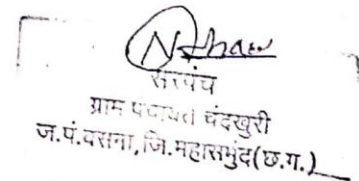 सरपंच
ग्राम पंचायत चंदखुरी
ज.पं.बसना, जि.महासमुंद(छ.ग.)